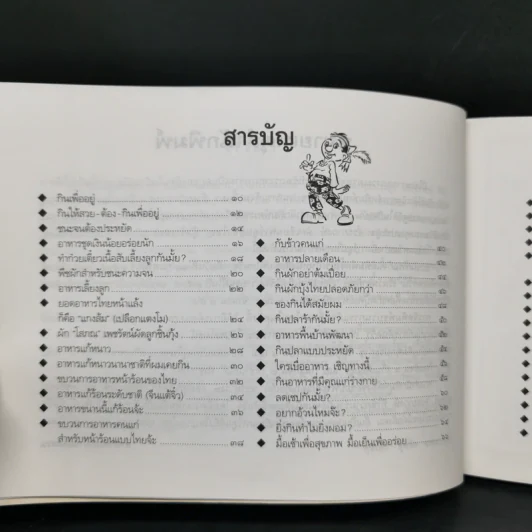 สารบัญ
กินเพื่ออยู่ ๑๐
กินให้สวย-ต้อง-กินเพื่ออยู่ ๑๒
ชนะจนต้องประหยัด ๑๔
อาหารชุดเงินน้อยอร่อยนัก ๑๖
ทำก๋วยเตี๋ยวเนื้อสับเลี้ยงลูกกันมั้ย? ๑๘
พืชผักสำหรับชนะความจน ๒๐
อาหารเลี้ยงลูก ๒๒
ยอดอาหารไทยหน้าแล้ง
ก็คือ "แกงส้ม" (เปลือกแตงโม) ๒๔
ผัก "โสภณ" เพชรัตน์ผัดลูกชิ้นกุ้ง ๒๖
อาหารแก้หนาว ๒๘
อาหารแก้หนาวนานาชาติที่ผมเคยกิน ๓๐
ขบวนการอาหารหน้าร้อนของไทย ๓๒
อาหารแก้ร้อนระดับชาติ (จีนแต้จิ๋ว) ๓๔
อาหารขนานนี้แก้ร้อนจ้ะ ๓๖
ขบวนการอาหารคนแก่
สำหรับหน้าร้อนแบบไทยจ้ะ ๓๘
กับข้าวคนแก่
อาหารปลายเดือน
กินผักอย่าต้มเปื่อย
กินผักบุ้งไทยปลอดภัยกว่า
ของกินได้สมัยผม
กินปลาร้ากันมั้ย?
อาหารพื้นบ้านพัฒนา
กินปลาแบบประหยัด
ใครเบื่ออาหาร เชิญทางนี้
กินอาหารที่มีคุณแก่ร่างกาย
ลดเซปกันมั้ย?
อยากอ้วนไหมจ๊ะ?
ยิ่งกินทำไมยิ่งผอม?
มื้อเช้าเพื่อสุขภาพ มื้อเย็นเพื่ออร่อย